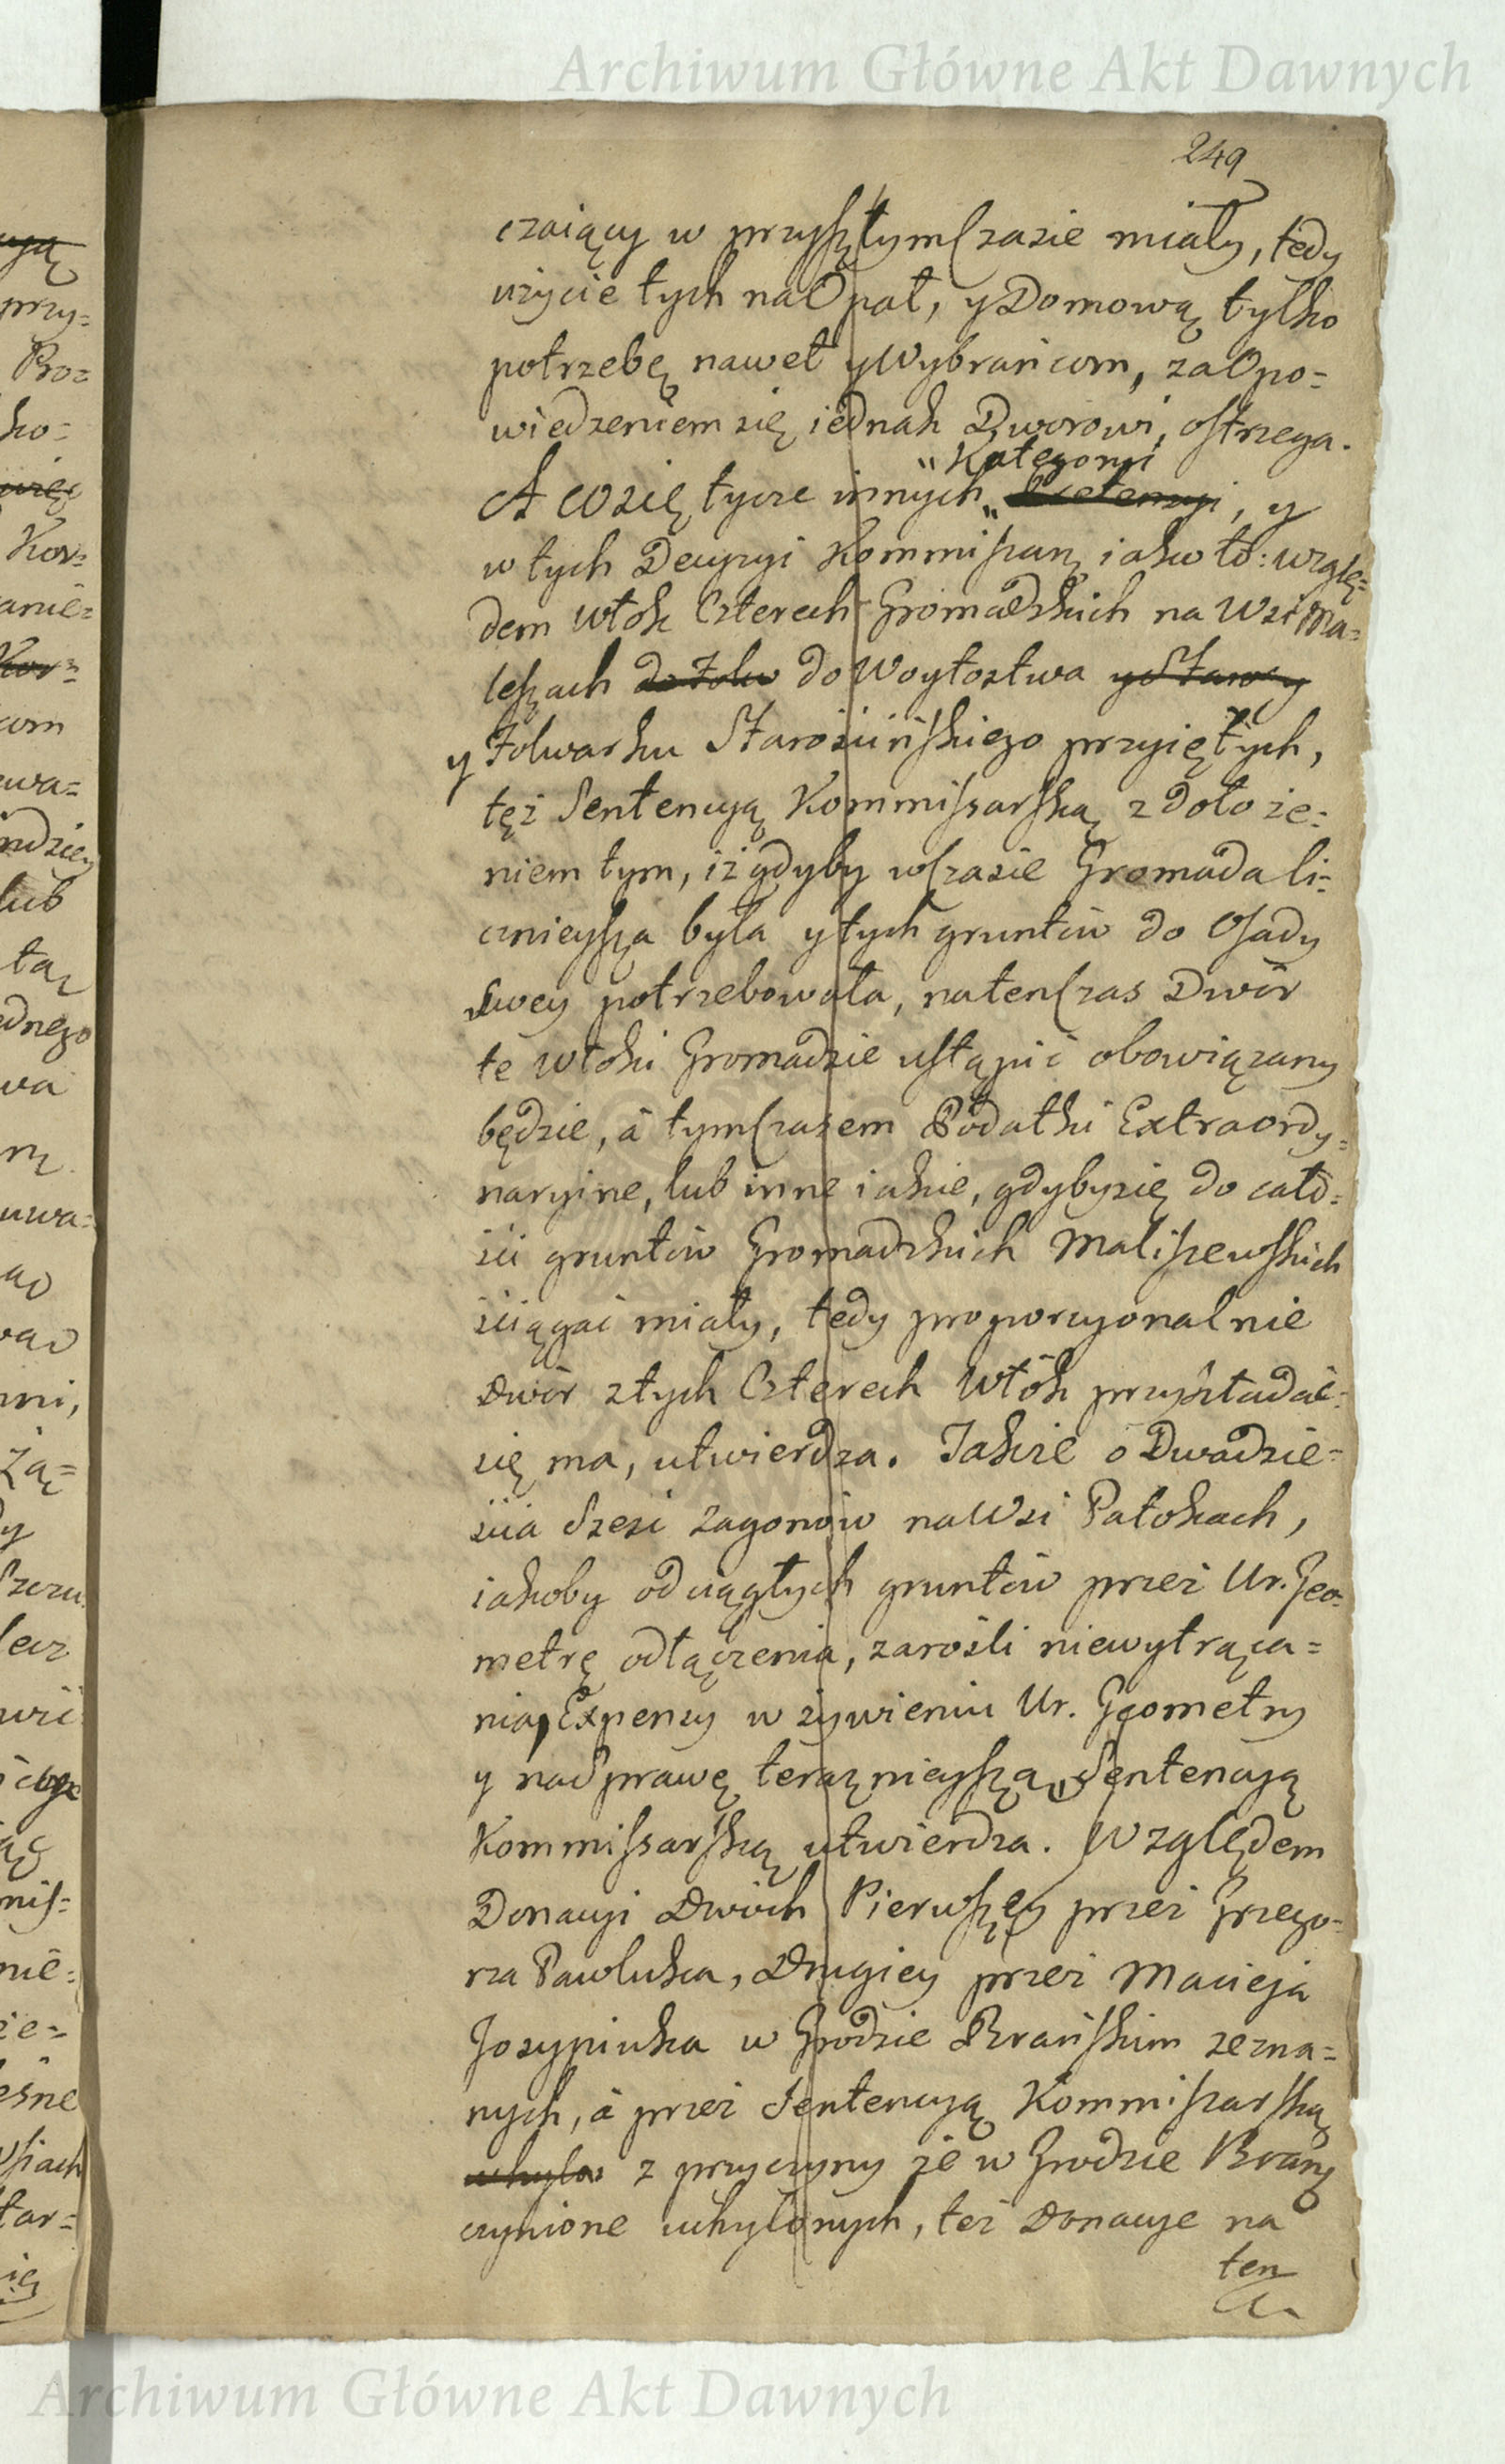 Archiwum Główne Akt Dawnych
249
czaiący w przyszłym Czasie miały, tedy
użycie tych na Opał, y Domową tylko
potrzebę nawet y Wybrańcom, za Opo=
wiedzeniem się iednak Dworowi, ostrzega.
Kategoryi
A co się tycze innych Pretensyi, y
w tych Decyzyi Kommissarz: iako to: wzglę=
dem Włok Czterech Gromadzkich na Wsi Ma=
leszach do Folw do Woytostwa y Starosty
y Folwarku Starościńskiego przyiętych,
tęż Sentencyą Kommissarską z dołoże=
niem tym, iż gdyby w Czasie Gromada li=
cznieysza była y tych gruntów do Osady
Swey potrzebowała, naten Czas Dwór
te Włoki Gromadzie ustąpić obowiązany
będzie, á tym Czasem Podatki Extraordy=
naryine, lub inne iakie, gdyby się do cało=
ści gruntów Gromadzkich Maliszewskich
ściągać miały, tedy proporcyonalnie
Dwór z tych Czterech Włók przykładać=
się ma, utwierdza. Także o Dwadzie=
ścia Sześć Zagonów na Wsi Patokach,
iakoby od ciągłych gruntów przez Ur. Jeo=
metrę odłączenia, zarośli niewytrąca=
nia, Expensy w żywieniu Ur. Geometry
y na Sprawę teraznieyszą Sentencyą
Kommissarską utwierdza. Względem
Donacyi Dwóch Pierwszey przez Grzego=
rza Pawluka, Drugiey przez Macieja
Jozypiuka w Grodzie Brańskim zezna=
nych, á przez Sentencyą Kommissarską
uhylo z przyczyny że w Grodzie Brańs:
czynione uchylonych, też Donacye na
ten
Archiwum Główne Akt Dawnych